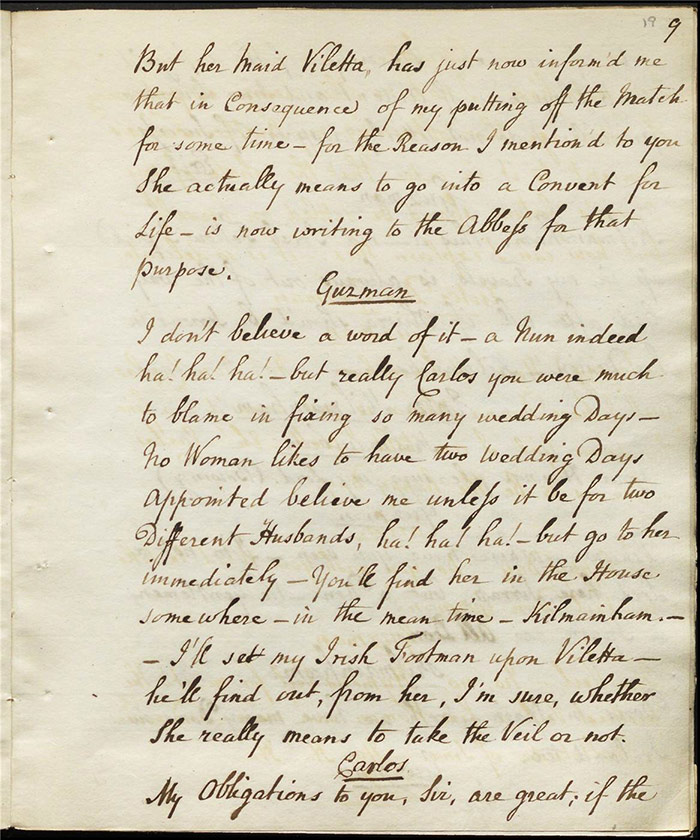 19 9
But her Maid Viletta, has just now inform'd me
that in Consequence of my putting off the Match
for some time – for the Reason I mention'd to you
She actually means to go into a Convent for
Life – is now writing to the Abbeſs for that
purpose.
Guzman
I don't believe a word of it – a Nun indeed
ha! ha! ha! – but really Carlos you were much
to blame in fixing so many wedding Days –
No Woman likes to have two wedding Days
appointed believe me unleſs it be for two
Different Husbands, ha! ha! ha! – but go to her
immediately – You'll find her in the House
somewhere – in the mean time – Kilmainham. –
– I'll set my Irish Footman upon Viletta –
he'll find out, from her, I'm sure, whether
She really means to take the Veil or not.
Carlos
My Obligations to you, Sir, are great; if the